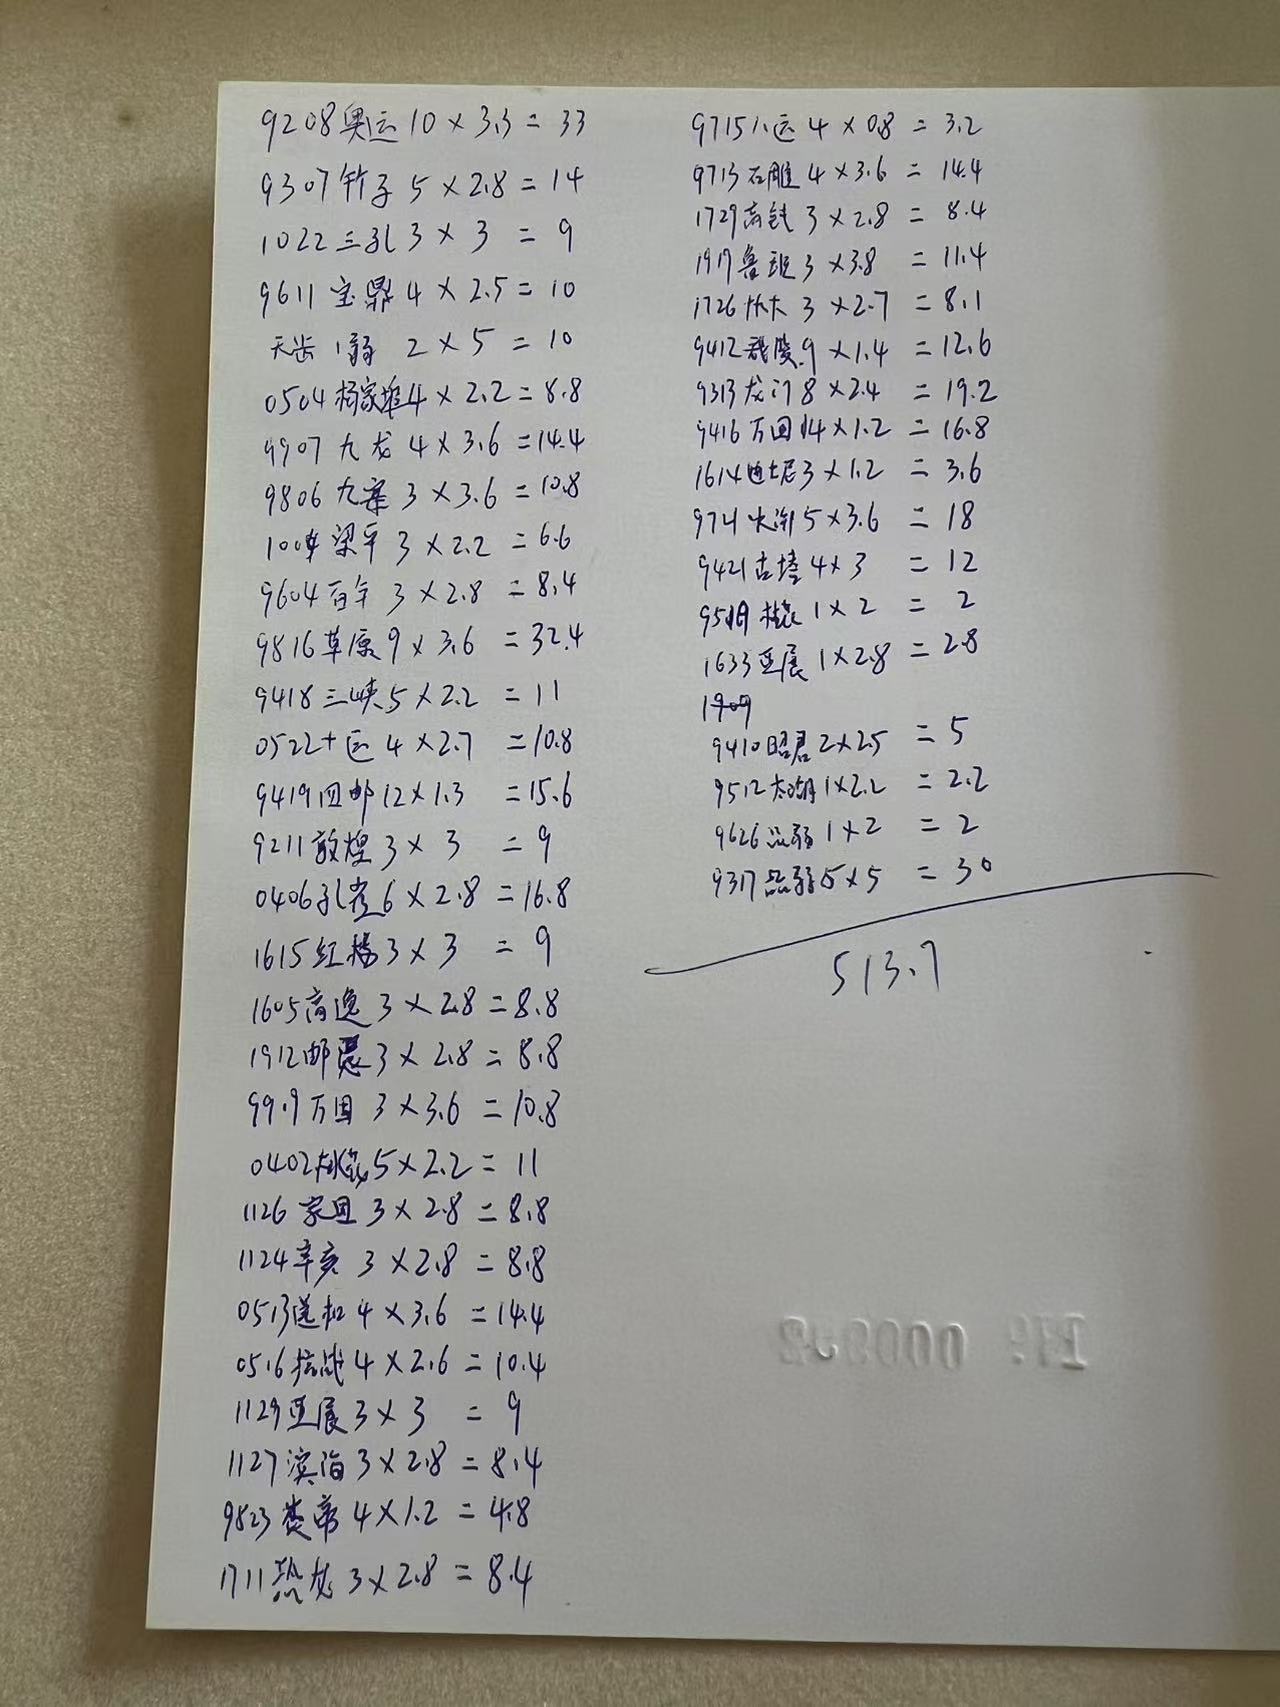 9208奥运 10 × 3.3 = 33
9307竹子 5 × 2.8 = 14
1022三孔 3 × 3 = 9
9611宝鼎 4 × 2.5 = 10
天安 1弱 2 × 5 = 10
0504杨家埠 4 × 2.2 = 8.8
9907九龙 4 × 3.6 = 14.4
9806九寨 3 × 3.6 = 10.8
1004梁平 3 × 2.2 = 6.6
9604百年 3 × 2.8 = 8.4
9816草原 9 × 3.6 = 32.4
9418三峡 5 × 2.2 = 11
0522十运 4 × 2.7 = 10.8
9419回邮 12 × 1.3 = 15.6
9211敦煌 3 × 3 = 9
0406孔雀 6 × 2.8 = 16.8
1615红楼 3 × 3 = 9
1605高逸 3 × 2.8 = 8.8
1912邮 3 × 2.8 = 8.8
99.9万国 3 × 3.6 = 10.8
0402桃花 5 × 2.2 = 11
1126家园 3 × 2.8 = 8.8
1124辛亥 3 × 2.8 = 8.8
0513遥和 4 × 3.6 = 14.4
0516抗战 4 × 2.6 = 10.4
1129亚展 3 × 3 = 9
1127滨海 3 × 2.8 = 8.4
9823黄帝 4 × 1.2 = 4.8
1711恐龙 3 × 2.8 = 8.4
9715八运 4 × 0.8 = 3.2
9713石雕 4 × 3.6 = 14.4
1729高铁 3 × 2.8 = 8.4
1917鲁班 3 × 3.8 = 11.4
1726 3 × 2.7 = 8.1
9412武陵 9 × 1.4 = 12.6
9313龙门 8 × 2.4 = 19.2
9416万国 14 × 1.2 = 16.8
1614迪士尼 3 × 1.2 = 3.6
9721 5 × 3.6 = 18
9421古塔 4 × 3 = 12
桂花 1 × 2 = 2
1633亚展 1 × 2.8 = 2.8
1909
9410昭君 2 × 2.5 = 5
9512太湖 1 × 2.2 = 2.2
9626品弱 1 × 2 = 2
9317品弱 5 × 5 = 30
513.7